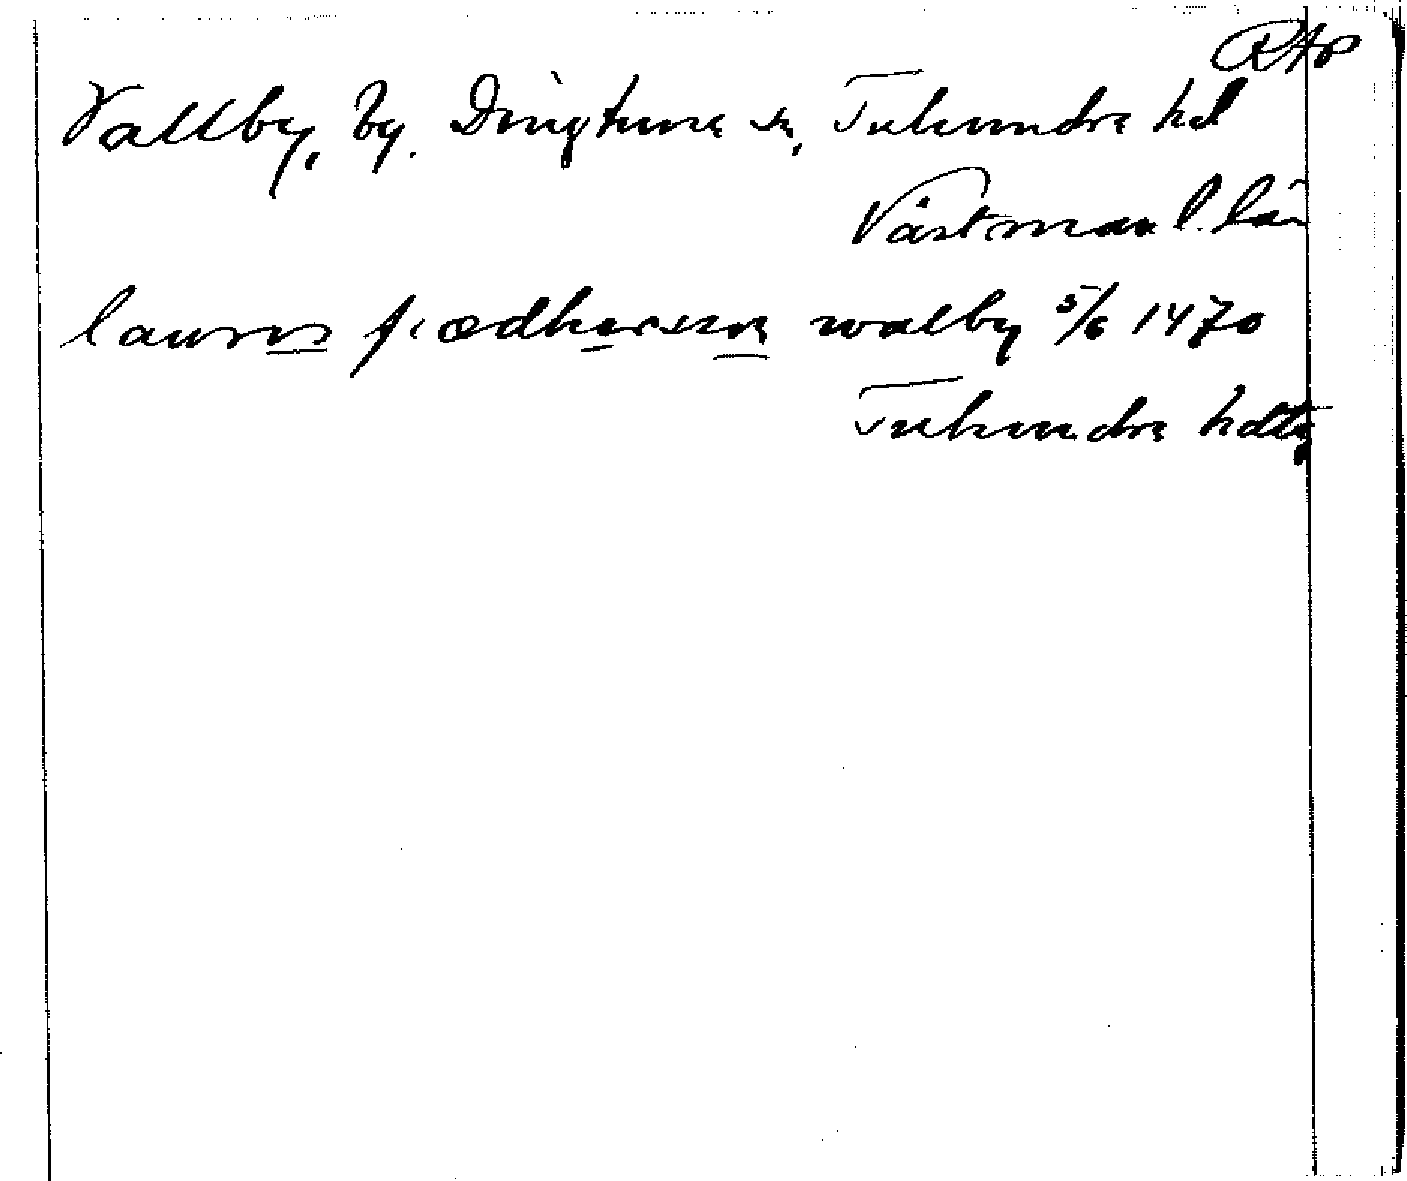 RAp
Vallby, by. Dingtuna sn, Tuhundra hd
Västmanl. län
laurens pædhersson walby 5/6 1470
Tuhundra hdtg